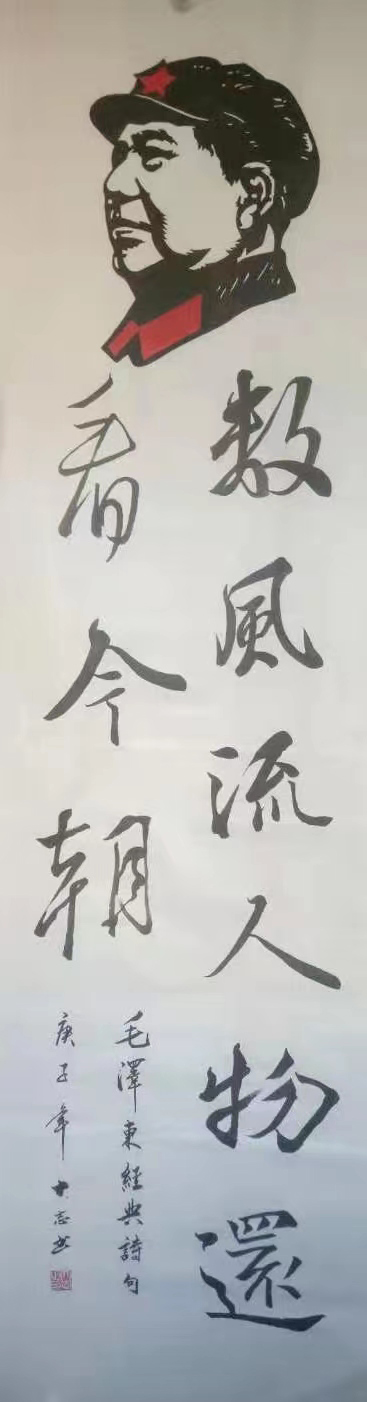 数風流人物還
看今朝
毛澤東經典詩句
庚子年 大志书